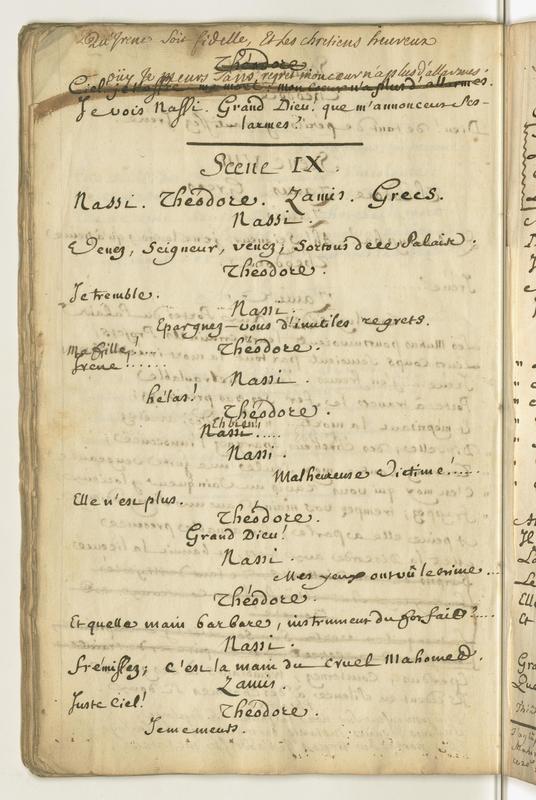 Qu'Irene soit fidelle, Et les chretiens heureux
Théodore
ouy Je meurs sans regret mon cœur n'a plus d'allarmes.
Ciel mon cœur n'a plus d'allarmes.
Je vois Nassi. Grand Dieu, que m'annoncent ses
larmes?
Scene IX.
Nassi. Théodore. Zamis. Grecs.
Nassi.
Venez, Seigneur, venez; sortons de ce Palais.
Théodore.
Je tremble.
Nassi.
Epargnez-vous d'inutiles regrets.
Théodore.
Ma fille!
Irene.......
Nassi.
hélas!
Théodore.
Eh bien!
Nassi.....
Nassi.
Malheureuse Victime!.....
Elle n'est plus.
Théodore.
Grand Dieu!
Nassi.
Mes yeux ont vû le crime...
Théodore.
Et quelle main barbare, instrument du forfait?....
Nassi.
frémissez; c'est la main du cruel Mahomed.
Zamis.
Juste Ciel!
Théodore.
Je me meurs.